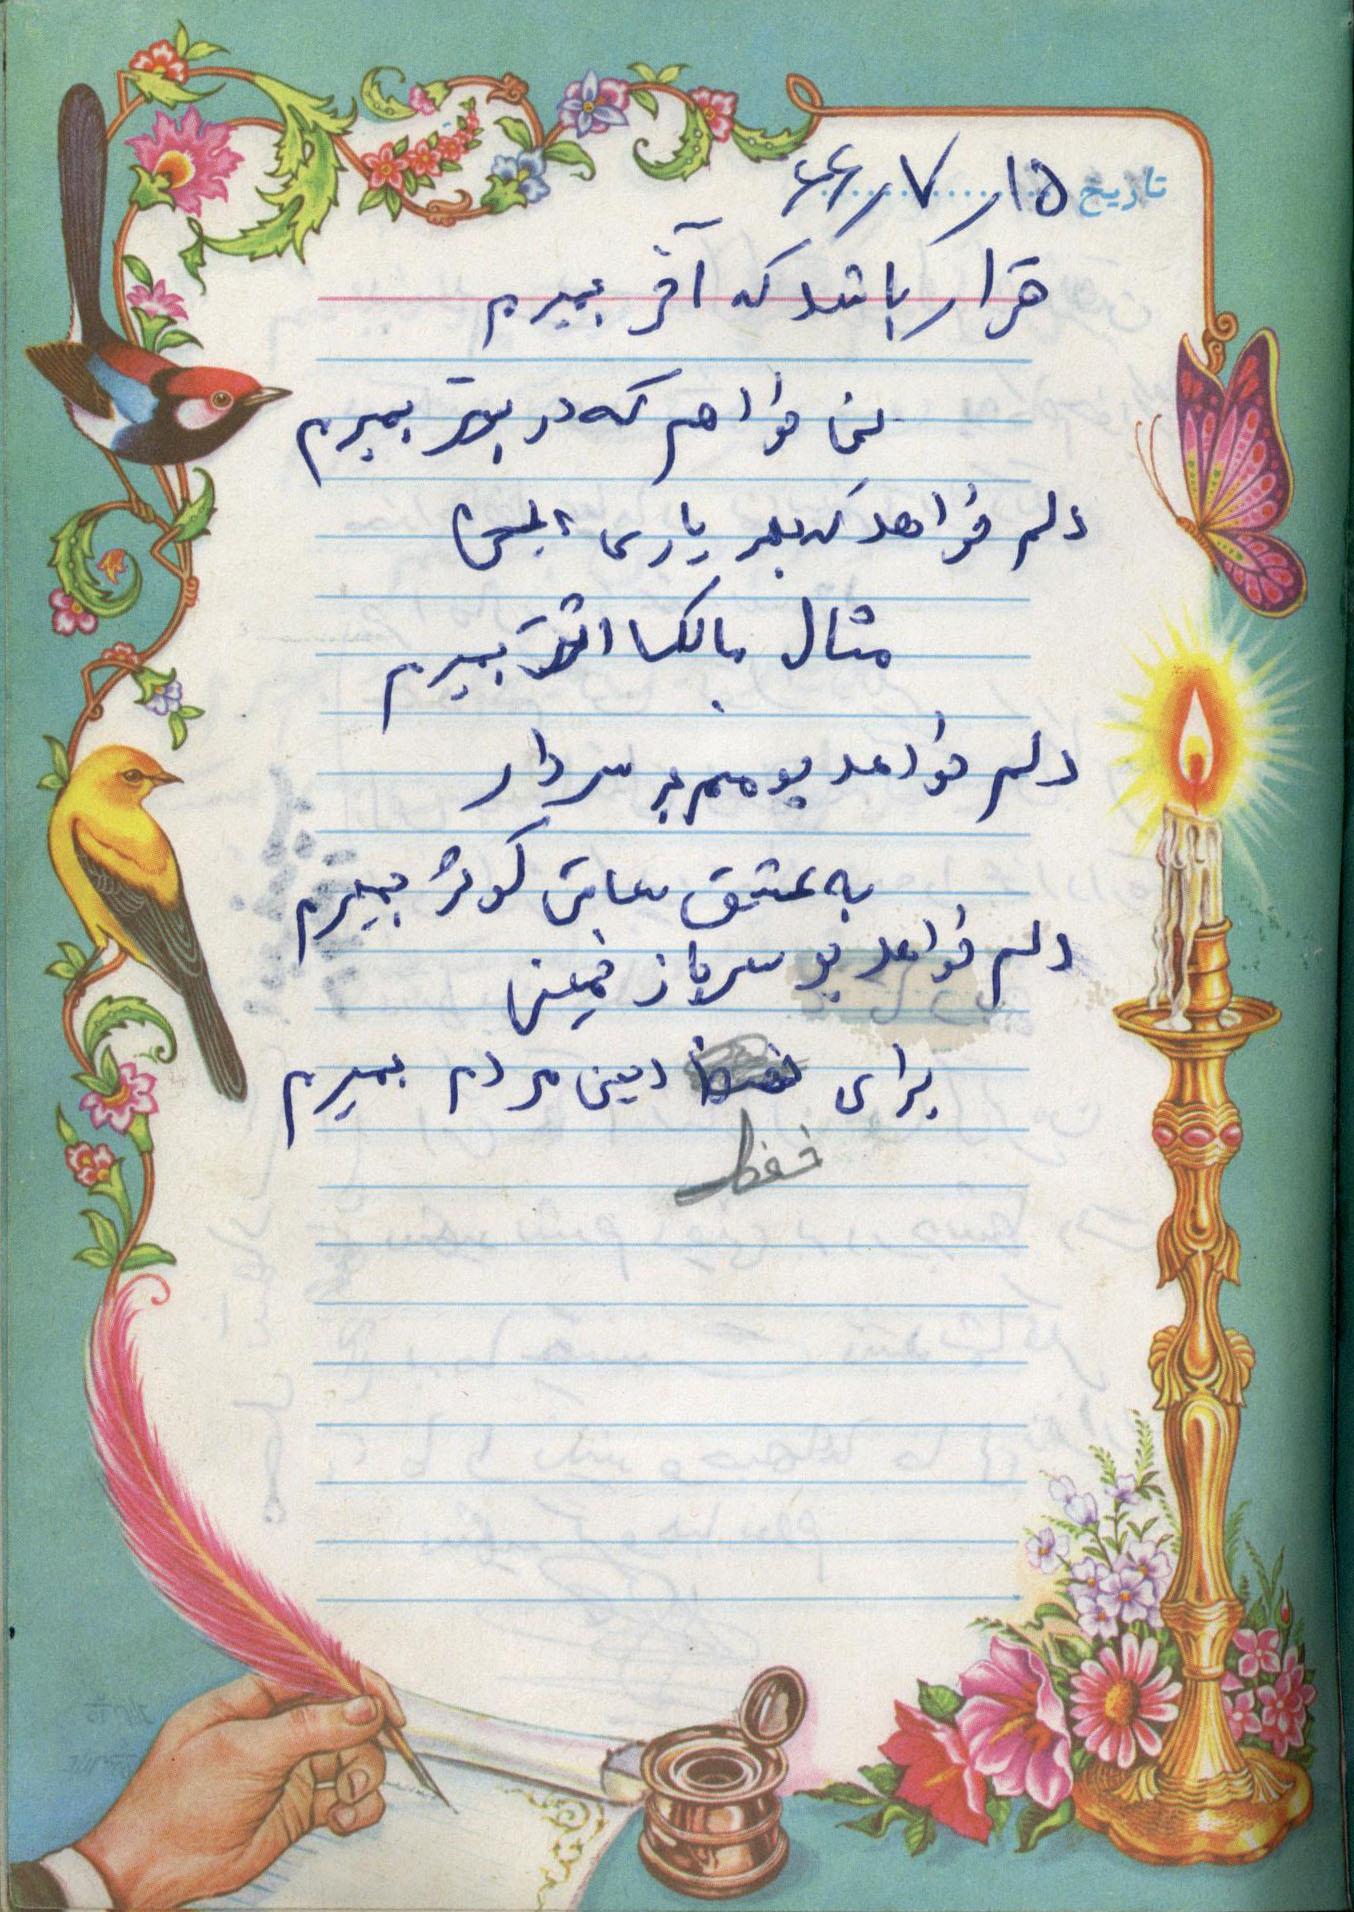 تاریخ ۶۶/۷/۱۵
قرار باشد که آخر بمیرم
نمی خواهم که در بستر بمیرم
دلم خواهد که بهر یاری
مثال مالک اشتر بمیرم
دلم خواهد چو میثم بر سر دار
به عشق ساقی کوثر بمیرم
دلم خواهد چو سرباز خمینی
برای دین مردم بمیرم
حفظ